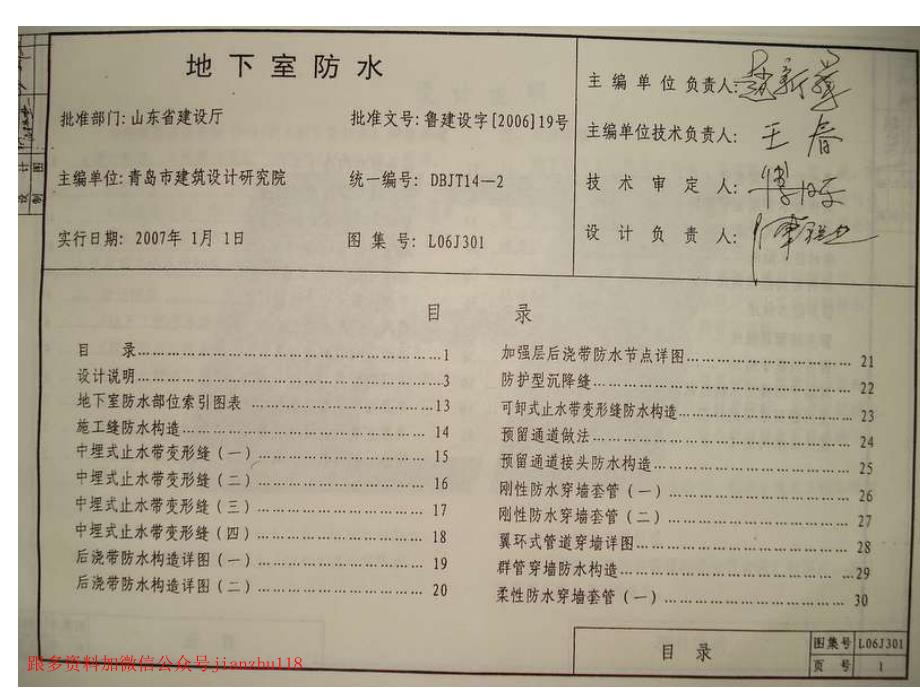 地下室防水
批准部门:山东省建设厅 批准文号:鲁建设字[2006]19号
主编单位:青岛市建筑设计研究院 统一编号: DBJT14—2
实行日期: 2007年 1月 1日 图 集 号: L06J301
主 编 单 位 负责人:
主编单位技术负责人: 王 春
技 术 审 定 人:
设 计 负 责 人:
设 计
制 图
目 录
目 录……………………………………1
设计说明……………………………………3
地下室防水部位索引图表 ……………………13
施工缝防水构造…………………………… 14
中埋式止水带变形缝(一)………………… 15
中埋式止水带变形缝(二)………………… 16
中埋式止水带变形缝(三)………………… 17
中埋式止水带变形缝(四)………………… 18
后浇带防水构造详图(一)………………… 19
后浇带防水构造详图(二)………………… 20
加强层后浇带防水节点详图………………… 21
防护型沉降缝……………………………… 22
可卸式止水带变形缝防水构造……………… 23
预留通道做法……………………………… 24
预留通道接头防水构造…………………… 25
刚性防水穿墙套管(一)………………… 26
刚性防水穿墙套管(二)………………… 27
翼环式管道穿墙详图……………………… 28
群管穿墙防水构造………………………… …29
柔性防水穿墙套管(一)………………… 30
目 录
图集号 L06J301
页 号 1
跟多资料加微信公众号jianzhu118